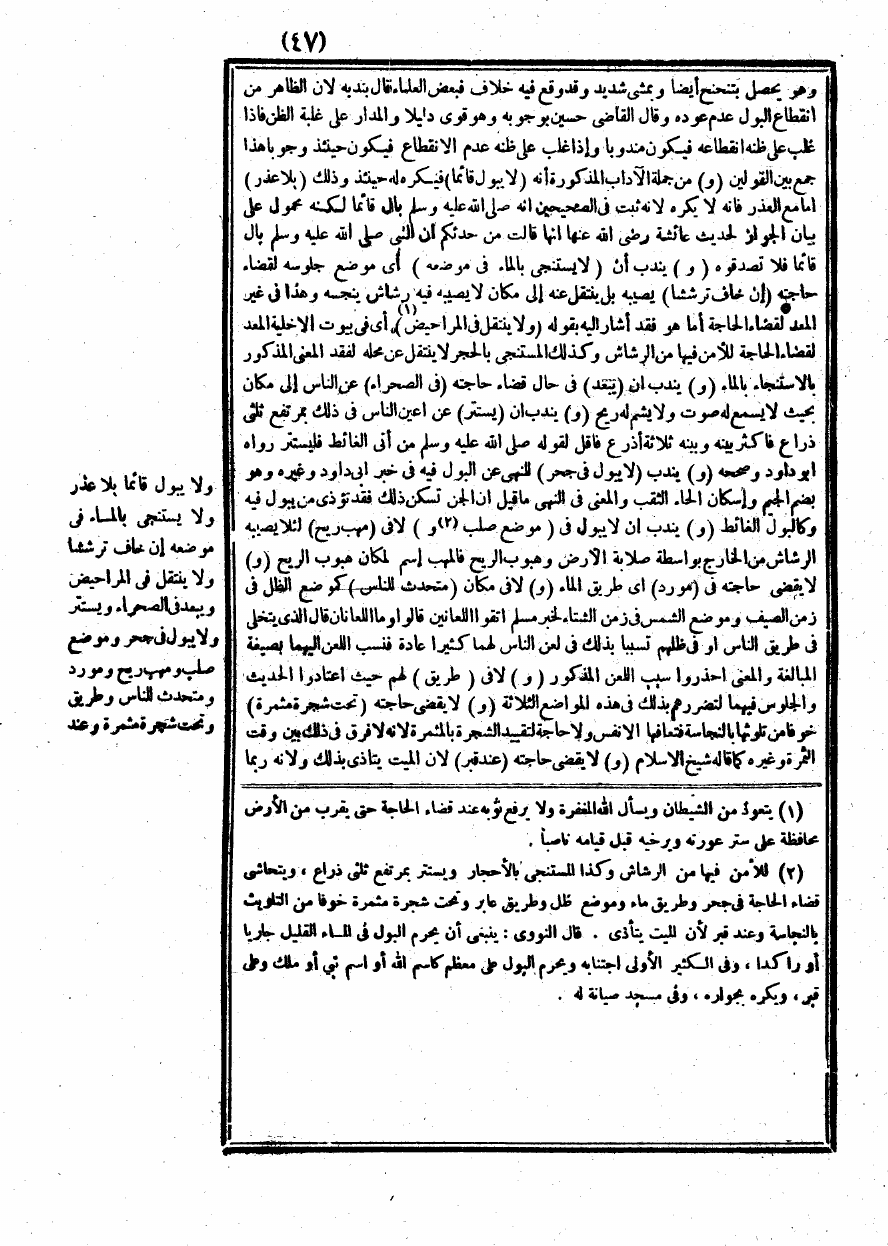 (٤٧)
وهو يحصل بتنحنح أيضا وبمشى شديد وقد وقع فيه خلاف فبعض العلماء قال بندبه لان الظاهر من
انقطاع البول عدم عوده وقال القاضى حسين بوجوبه وهو قوى دليلا والمدار على غلبة الظن فاذا
غلب على ظنه انقطاعه فيكون مندوبا وإذا غلب على ظنه عدم الانقطاع فيكون حينئذ وجوبا هذا
جمع بين القولين (و) من جملة الآداب المذكورة أنه (لا يبول قائما) فيكره له حينئذ وذلك (بلا عذر)
اما مع العذر فانه لا يكره لانه ثبت فى الصحيحين انه صلى الله عليه وسلم بال قائما لكنه محمول على
بيان الجواز لحديث عائشة رضى الله عنها انها قالت من حدثكم أن النبى صلى الله عليه وسلم بال
قائما فلا تصدقوه (و) يندب أن (لا يستنجى بالماء فى موضعه) أى موضع جلوسه لقضاء
حاجته (إن خاف ترششا) يصيبه بل ينتقل عنه إلى مكان لا يصيبه فيه رشاش ينجسه وهذا فى غير
المعد لقضاء الحاجة أما هو فقد أشار اليه بقوله (ولا ينتقل فى المراحيض)(١) أى فى بيوت الاخلية المعد
لقضاء الحاجة للأمن فيها من الرشاش وكذلك المستنجى بالحجر لا ينتقل عن محله لفقد المعنى المذكور
بالاستنجاء بالماء (و) يندب ان (يبعد) فى حال قضاء حاجته (فى الصحراء) عن الناس إلى مكان
بحيث لا يسمع له صوت ولا يشم له ريح (و) يندب ان (يستتر) عن اعين الناس فى ذلك بمرتفع ثلثى
ذراع فاكثر بينه وبينه ثلاثة أذرع فاقل لقوله صلى الله عليه وسلم من أتى الغائط فليستتر رواه
ابو داود وصححه (و) يندب (لا يبول فى جحر) للنهى عن البول فيه فى خبر ابى داود وغيره وهو
بضم الجيم وإسكان الحاء الثقب والمعنى فى النهى ما قيل ان الجن تسكن ذلك فقد تؤذى من يبول فيه
وكالبول الغائط (و) يندب ان لا يبول فى (موضع صلب(٢) و) لا فى (مهب ريح) لئلا يصيبه
الرشاش من الخارج بواسطة صلابة الارض وهبوب الريح فالمهب إسم لمكان هبوب الريح (و)
لا يقضى حاجته فى (مورد) اى طريق الماء (و) لا فى مكان (متحدث للناس) كموضع الظل فى
زمن الصيف وموضع الشمس فى زمن الشتاء لخبر مسلم اتقوا اللعانين قالوا وما اللعانان قال الذى يتخلى
فى طريق الناس او فى ظلهم تسببا بذلك فى لعن الناس لهما كثيرا عادة فنسب اللعن اليهما بصيغة
المبالغة والمعنى احذروا سبب اللعن المذكور (و) لا فى (طريق) لهم حيث اعتادوا الحديث
والجلوس فيهما لتضررهم بذلك فى هذه المواضع الثلاثة (و) لا يقضى حاجته (تحت شجرة مثمرة)
خوفا من تلوثها بالنجاسة فتعافها الانفس ولا حاجة لتقييد الشجرة بالمثمرة لانه لا فرق فى ذلك بين وقت
الثمرة وغيره كما قاله شيخ الاسلام (و) لا يقضى حاجته (عند قبر) لان الميت يتأذى بذلك ولانه ربما
ولا يبول قائما بلا عذر
ولا يستنجى بالماء فى
موضعه إن خاف ترششا
ولا ينتقل فى المراحيض
ويبعد فى الصحراء ويستتر
ولا يبول فى جحر وموضع
صلب ومهب ريح ومورد
ومتحدث للناس وطريق
وتحت شجرة مثمرة وعند
(١) يتعوذ من الشيطان ويسأل الله المغفرة ولا يرفع ثوبه عند قضاء الحاجة حتى يقرب من الأرض
محافظة على ستر عورته ويرخيه قبل قيامه ناصبا .
(٢) للأمن فيها من الرشاش وكذا المستنجى بالأحجار ويستتر بمرتفع ثلثى ذراع ، ويتحاشى
قضاء الحاجة فى جحر وطريق ماء وموضع ظل وطريق عابر وتحت شجرة مثمرة خوفا من التلويث
بالنجاسة وعند قبر لأن الميت يتأذى . قال النووى : ينبغى أن يحرم البول فى الماء القليل جاريا
أو راكدا ، وفى الكثير الأولى اجتنابه ويحرم البول على معظم كاسم الله أو اسم نبى أو ملك وعلى
قبر ، ويكره بجواره ، وفى مسجد صيانة له .